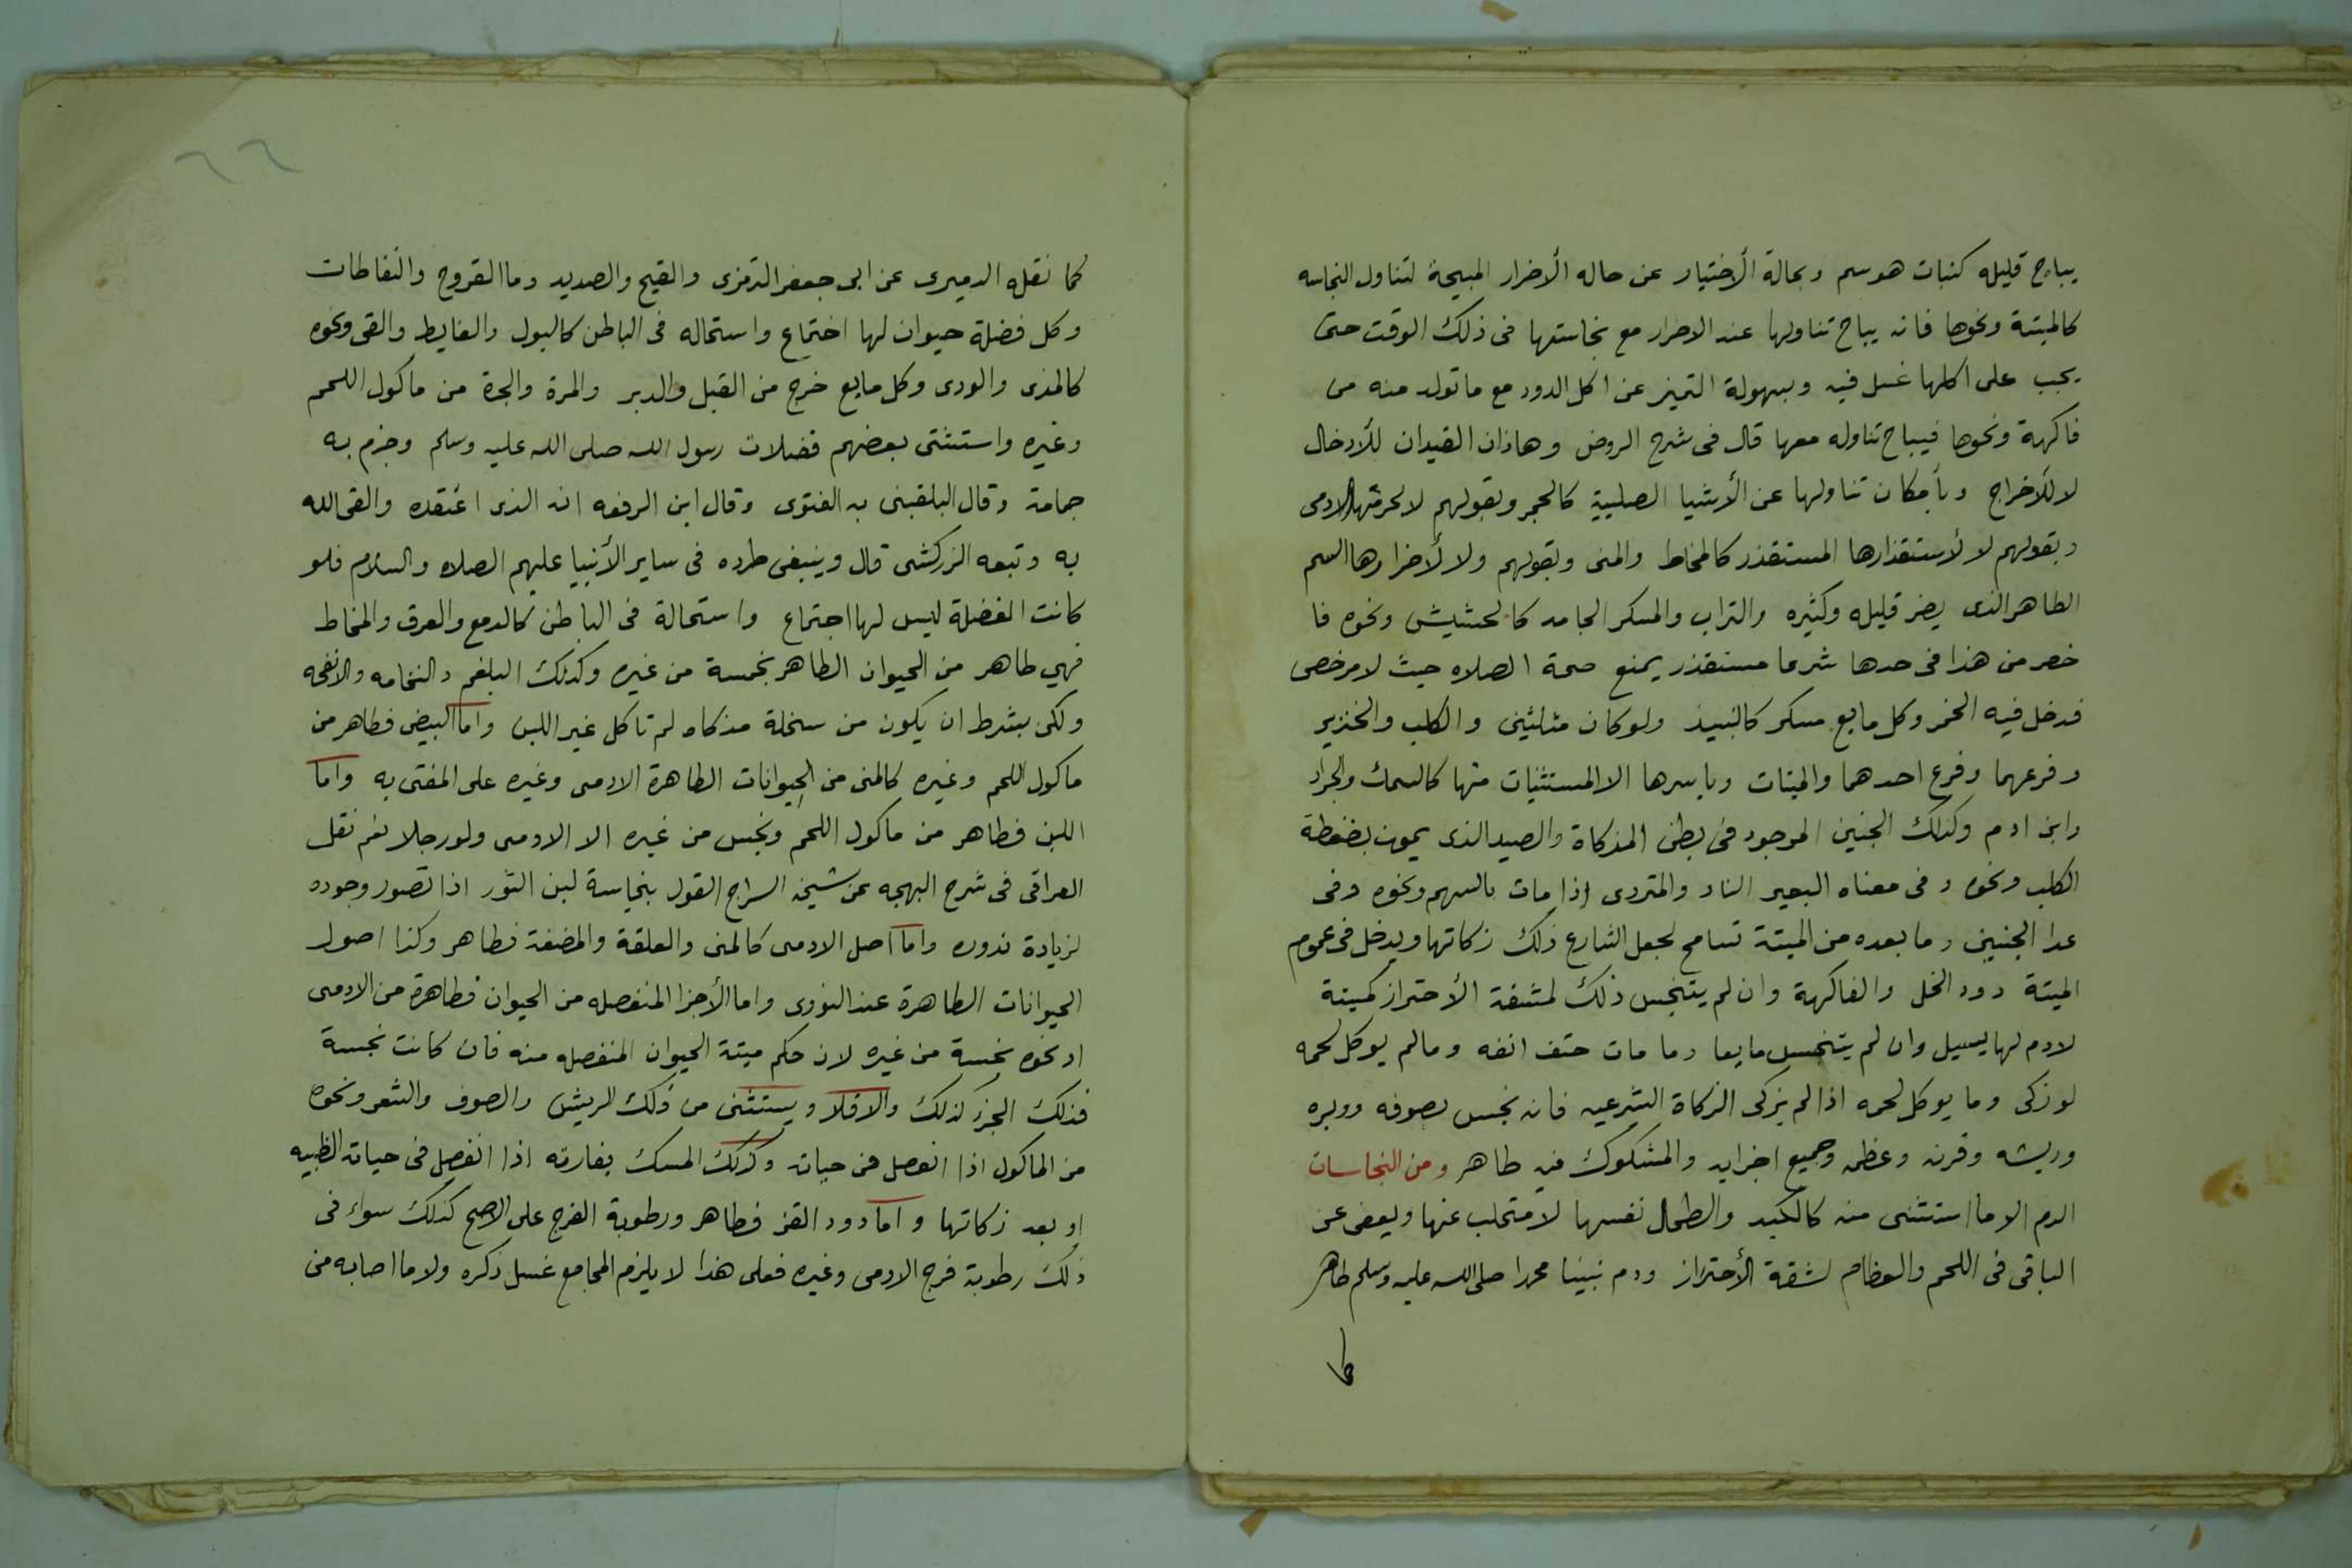 يباح قليله كنبات هو سم وبحالة الأختيار عن حاله الأضرار المبيحة لتناول النجاسه
كالميتة ونحوها فانه يباح تناولها عند الاضرار مع نجاستها فى ذلك الوقت حتى
يجب على اكلها غسل فيه وبسهولة التميز عن اكل الدود مع ما تولد منه من
فاكهة ونحوها فيباح تناوله معها قال فى شرح الروض وهاذان القيدان للأدخال
لا للأخراج وبأمكان تناولها عن الأشيا الصلبية كالحجر وبقولهم لا لحرمتها الادمى
وبقولهم لا لأستقذارها المستقذر كالمخاط والمنى وبقولهم ولا لأضرارها السم
الطاهر الذى يضر قليله وكثيره والتراب والمسكر الجامد كالحشيش ونحوه فا
خصر من هذا فى حدها شرعا مستقذر يمنع صحة الصلاه حيث لا مرخص
فدخل فيه الخمر وكل مايع مسكر كالنبيذ ولو كان مثلثين والكلب والخنزير
وفرعهما وفرع احدهما والميتات وباسرها الا المستثنيات منها كالسمك والجراد
وابن ادم وكذلك الجنين الموجود فى بطن المذكاة والصيد الذى يموت بضغطة
الكلب ونحوه وفى معناه البعير الناد والمتردى اذا مات بالسهم ونحوه وفى
عدا الجنين وما بعده من الميتة تسامح لجعل الشارع ذلك زكاتها ويدخل فى عموم
الميتة دود الخل والفاكهة وان لم يتنجس ذلك لمشقة الأحتراز كميتة
لا دم لها يسيل وان لم يتنجس مايعا وما مات حتف انفه وما لم يوكل لحمه
لو زكى وما يوكل لحمه اذا لم يزكى الزكاة الشرعيه فانه نجس بصوفه ووبره
وريشه وقرنه وعظمه وجميع اجزايه والمشكوك فيه طاهر ومن النجاسات
الدم الا ما استثنى منه كالكبد والطحال نفسها لا متحلب عنها ويعفى عن
الباقى فى اللحم والعظام لشقة الأحتراز ودم نبينا محمدا صلى الله عليه وسلم طاهر
كما نقله الدميرى عن ابى جعفر الترمزى والقيح والصديد وما القروح والنفاطات
وكل فضلة حيوان لها اجتماع واستحاله فى الباطن كالبول والغايط والقى ونحوه
كالمذى والودى وكل مايع خرج من القبل والدبر والمرة والجرة من ماكول اللحم
وغيره واستثنى بعضهم فضلات رسول الله صلى الله عليه وسلم وجزم به
جمامة وقال البلقينى به الفتوى وقال ابن الرفعه انه الذى اعتقده والقى الله
به وتبعه الزركشى قال وينبغى طرده فى ساير الأنبيا عليهم الصلاه والسلام فلو
كانت الفضلة ليس لها اجتماع واستحالة فى الباطن كالدمع والعرق والمخاط
فهي طاهر من الحيوان الطاهر نجسة من غيره وكذلك البلغم والنخامه والانفحه
ولكن بشرط ان يكون من سخلة مذكاه لم تاكل غير اللبن واما البيض فطاهر من
ماكول اللحم وغيره كالمنى من الحيوانات الطاهرة الادمى وغيره على المفتى به واما
اللبن فطاهر من ماكول اللحم ونجس من غيره الا الادمى ولو رجلا نعم نقل
العراقى فى شرح البهجه عن شيخه السراج القول بنجاسة لبن الثور اذا تصور وجوده
لزيادة ندوره واما اصل الادمى كالمنى والعلقة والمضغة فطاهر وكذا اصول
الحيوانات الطاهرة عند النووى واما الأجزا المنفصله من الحيوان فطاهرة من الادمى
او نحوه نجسة من غيره لان حكم ميتة الحيوان المنفصله منه فان كانت نجسة
فذلك الجزء كذلك والا فلا ويستثنى من ذلك الريش والصوف والشعر ونحوه
من الماكول اذا انفصل فى حياته وكذلك المسك بفارته اذا انفصل فى حياته الظبيه
او بعد زكاتها واما دود القز فطاهر ورطوبة الفرج على الاصح كذلك سواء فى
ذلك رطوبة فرج الادمى وغيره فعلى هذا لا يلزم المجامع غسل ذكره ولا ما اصابه من